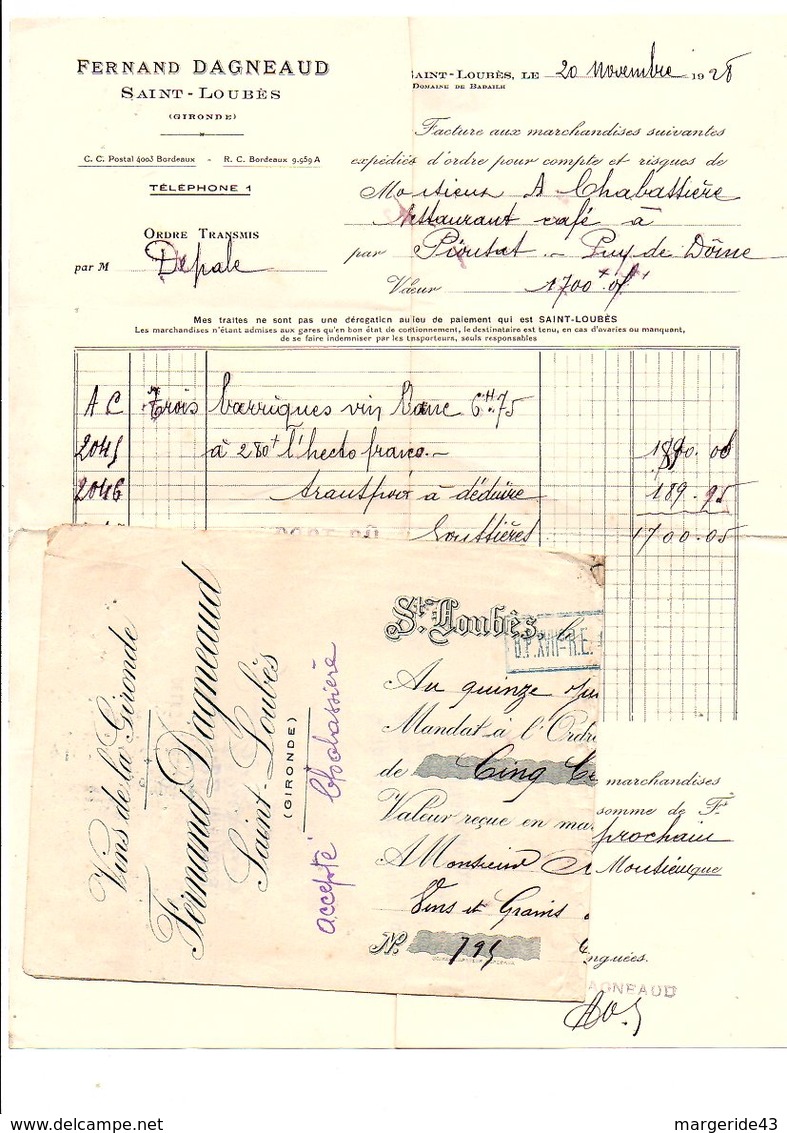 FERNAND DAGNEAUD
SAINT-LOUBÈS
(GIRONDE)
C. C. Postal 4003 Bordeaux - R. C. Bordeaux 9.959 A
TÉLÉPHONE 1
ORDRE TRANSMIS
par M Depale
SAINT-LOUBÈS, LE 20 Novembre 1928
DOMAINE DE BADAILH
Facture aux marchandises suivantes
expédiés d'ordre pour compte et risques de
Monsieur A Chabassière
Restaurant café à
par Pionsat - Puy de Dôme
Valeur 1700
Mes traites ne sont pas une dérogation au lieu de paiement qui est SAINT-LOUBÈS
Les marchandises n'étant admises aux gares qu'en bon état de conditionnement, le destinataire est tenu, en cas d'avaries ou manquant,
de se faire indemniser par les transporteurs, seuls responsables
A C Trois barriques vin blanc 6H75
2045 à 280 l'hecto franco.- 1890.00
2046 à déduire 189.95
1700.05
Vins de la Gironde
Fernand Dagneaud
Saint-Loubès
(GIRONDE)
accepté Chabassière
St Loubès, le
B.P.XVII-R.E.
Au quinze
Mandat à l'Ordre
de Cinq
Valeur reçue en ma
A Monsieur
Vins et Grains
No. 795
marchandises
somme de F.
prochain
Monsieur
nguées.
AGNEAUD
margeride43